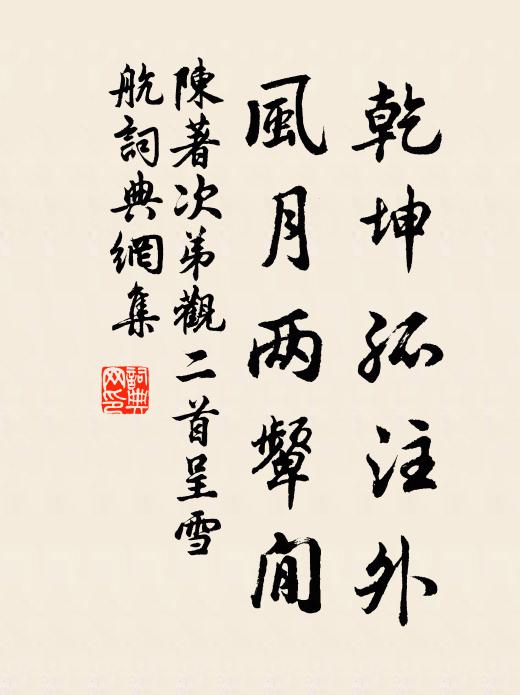 乾坤孤注外
風月两顰閒
陳著次弟觀二首呈雪
航詞典網集
詞典
网印